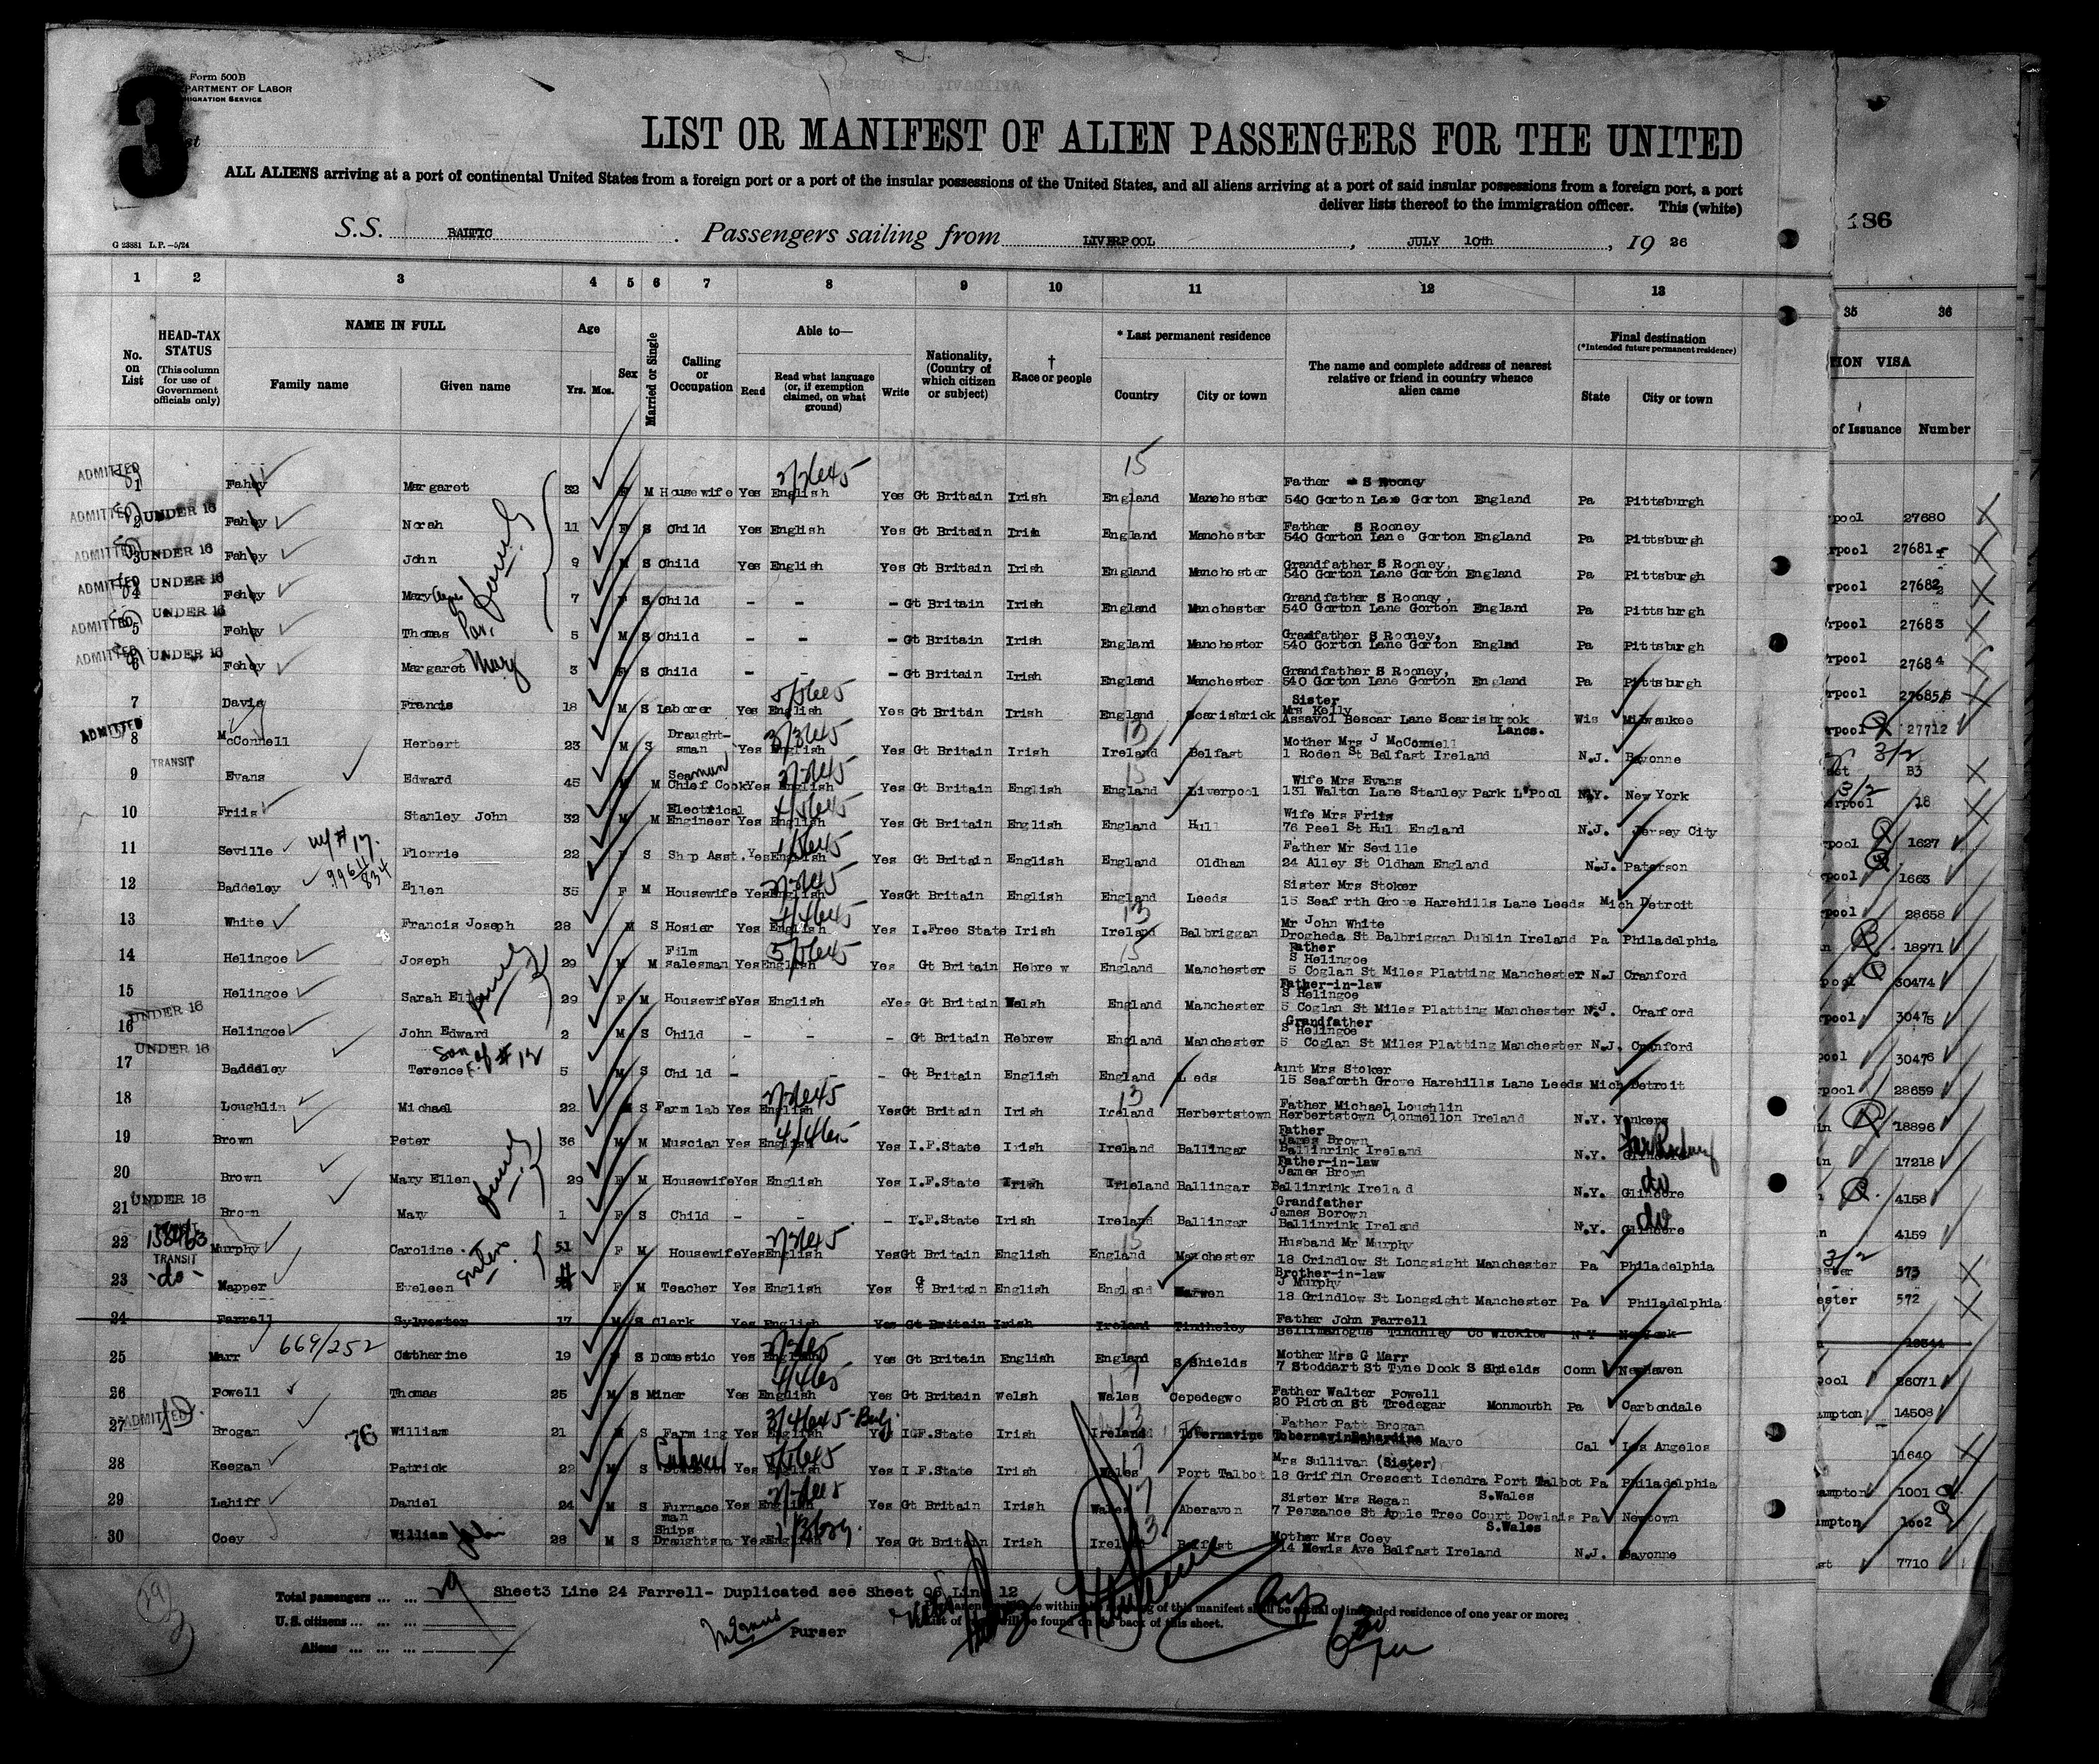 3
Form 500B
PARTMENT OF LABOR
MIGRATION SERVICE
LIST OR MANIFEST OF ALIEN PASSENGERS FOR THE UNITED
ALL ALIENS arriving at a port of continental United States from a foreign port or a port of the insular possessions of the United States, and all aliens arriving at a port of said insular possessions from a foreign port, a port
deliver lists thereof to the immigration officer. This (white)
186
S.S. BALTIC. Passengers sailing from LIVERPOOL, JULY 10th, 19 26
G 23881 L.P.—5/24
1 2 3 4 5 6 7 8 9 10 11 12 13 35 36
No. on List
HEAD-TAX STATUS
(This column for use of Government officials only)
NAME IN FULL
Family name Given name
Age
Yrs. Mos.
Sex
Married or Single
Calling or Occupation
Able to—
Read Read what language (or, if exemption claimed, on what ground) Write
Nationality, (Country of which citizen or subject)
† Race or people
* Last permanent residence
Country City or town
The name and complete address of nearest relative or friend in country whence alien came
Final destination
(*Intended future permanent residence)
State City or town
ION VISA
of Issuance Number
ADMITTED 1 Fahey Margaret 32 F M Housewife Yes English Yes Gt Britain Irish England Manchester Father S Rooney 540 Gorton Lane Gorton England Pa Pittsburgh
ADMITTED 2 UNDER 16 Fahey Norah 11 F S Child Yes English Yes Gt Britain Irish England Manchester Father S Rooney 540 Gorton Lane Gorton England Pa Pittsburgh rpool 27680
ADMITTED 3 UNDER 16 Fahey John 9 M S Child Yes English Yes Gt Britain Irish England Manchester Grandfather S Rooney, 540 Gorton Lane Gorton England Pa Pittsburgh rpool 27681
ADMITTED 4 UNDER 16 Fahey Mary 7 F S Child - - - Gt Britain Irish England Manchester Grandfather S Rooney, 540 Gorton Lane Gorton England Pa Pittsburgh rpool 27682
ADMITTED 5 UNDER 16 Fahey Thomas 5 M S Child - - - Gt Britain Irish England Manchester Grandfather S Rooney, 540 Gorton Lane Gorton Englad Pa Pittsburgh rpool 27683
ADMITTED 6 UNDER 16 Fahey Margaret Mary 3 F S Child - - - Gt Britain Irish England Manchester Grandfather S Rooney, 540 Gorton Lane Gorton England Pa Pittsburgh rpool 27684
7 Davis Francis 18 M S Laborer Yes English Yes Gt Britain Irish England Scarisbrick Sister Mrs Kelly Assavol Bescar Lane Scarisbrook Lancs. Wis Milwaukee rpool 27685
ADMITTED 8 McConnell Herbert 23 M S Draughtsman Yes English Yes Gt Britain Irish Ireland Belfast Mother Mrs J McConnell 1 Roden St Belfast Ireland N.J. Bayonne rpool 27712
TRANSIT 9 Evans Edward 45 M M Seaman Chief Cook Yes English Yes Gt Britain English England Liverpool Wife Mrs Evans 131 Walton Lane Stanley Park L'Pool N.Y. New York B3
10 Friis Stanley John 32 M M Electrical Engineer Yes English Yes Gt Britain English England Hull Wife Mrs Friis 76 Peel St Hull England N.J. Jersey City erpool 18
11 Seville Florrie 22 F S Shop Asst. Yes English Yes Gt Britain English England Oldham Father Mr Seville 24 Alley St Oldham England N.J. Paterson pool 1627
w/#17.
12 Baddeley Ellen 35 F M Housewife Yes English Yes Gt Britain English England Leeds Sister Mrs Stoker 15 Seaf rth Grove Harehills Lane Leeds Mich Detroit pool 1663
13 White Francis Joseph 28 M S Hosier Yes English Yes I.Free State Irish Ireland Balbriggan Mr John White Drogheda St Balbriggan Dublin Ireland Pa Philadelphia rpool 28658
14 Helingoe Joseph 29 M M Film salesman Yes English Yes Gt Britain Hebrew England Manchester Father S Helingoe 5 Coglan St Miles Platting Manchester N.J Cranford 18971
15 Helingoe Sarah Ellen 29 F M Housewife Yes English Yes Gt Britain Welsh England Manchester Father-in-law S Helingoe 5 Coglan St Miles Platting Manchester N.J. Cranford pool 30474
UNDER 16 16 Helingoe John Edward 2 M S Child - - - Gt Britain Hebrew England Manchester Grandfather S Helingoe 5 Coglan St Miles Platting Manchester N.J. Cranford rpool 30475
Son of #12
UNDER 16 17 Baddeley Terence F. 5 M S Child - - Gt Britain English England Leeds Aunt Mrs Stoker 15 Seaforth Grove Harehills Lane Leeds Mich Detroit pool 30476
18 Loughlin Michael 22 M S Farm lab Yes English Yes Gt Britain Irish Ireland Herbertstown Father Michael Loughlin Herbertstown Clonmellon Ireland N.Y. Yonkers rpool 28659
19 Brown Peter 36 M M Muscian Yes English Yes I.F.State Irish Ireland Ballingar Father James Brown Ballinrink Ireland N.Y. Far Rockaway 18896
20 Brown Mary Ellen 29 F M Housewife Yes English Yes I.F.State Irish Irieland Ballingar Father-in-law James Brown Ballinrink Irelad N.Y. Glincore do 17218
UNDER 16 21 Brown Mary 1 F S Child - - - I.F.State Irish Ireland Ballingar Grandfather James Borown Ballinrink Ireland N.Y. Glincore do 4158
22 Murphy Caroline 51 F M Housewife Yes English Yes Gt Britain English England Manchester Husband Mr Murphy 18 Grindlow St Longsight Manchester Pa Philadelphia 4159
Sisters
TRANSIT -do- 23 Mapper Eveleen F M Teacher Yes English Yes Gt Britain English England Brother-in-law J Murphy 18 Grindlow St Longsight Manchester Pa Philadelphia 573
ester 572
24 Farrell Sylvester 17 M S Clerk Yes English Yes Gt Britain Irish Ireland Tindheley Father John Farrell Tindhley Co Wicklow N Y New York
25 Marr 669/252 Catherine 19 F S Domestic Yes English Yes Gt Britain English England S Shields Mother Mrs G Marr 7 Stoddart St Tyne Dock S Shields Conn Newhaven
26 Powell Thomas 25 M S Miner Yes English Yes Gt Britain Welsh Wales Cepedegwo Father Walter Powell 20 Picton St Tredegar Monmouth Pa Carbondale pool 26071
ADMITTED 27 Brogan 76 William 21 M S Farming Yes English Yes I.F.State Irish Ireland Tobernavine Father Patt Brogan Mayo Cal Los Angelos ampton 14508
28 Keegan Patrick 22 M S Yes English Yes I F.State Irish Wales Port Talbot Mrs Sullivan (Sister) 18 Griffin Crescent Idendra Port Talbot S.Wales Pa Philadelphia 11640
29 Lahiff Daniel 24 M S Furnace man Yes English Yes Gt Britain Irish Wales Aberavon Sister Mrs Regan 7 Penzance St Apple Tree Court Dowlais S.Wales Pa Newtown ampton 1001
30 Coey William John 28 M S Ships Draughtsm Yes English Yes Gt Britain Irish Ireland Belfast Mother Mrs Coey 14 Mewis Ave Belfast Ireland N.J. Bayonne mpton 1002
st 7710
Total passengers ... ... 29 Sheet3 Line 24 Farrell- Duplicated see Sheet 06 Line 12
U.S. citizens ... ...
Aliens ... ... ...
Purser
of this manifest shall be actual or intended residence of one year or more;
will be found on the back of this sheet.